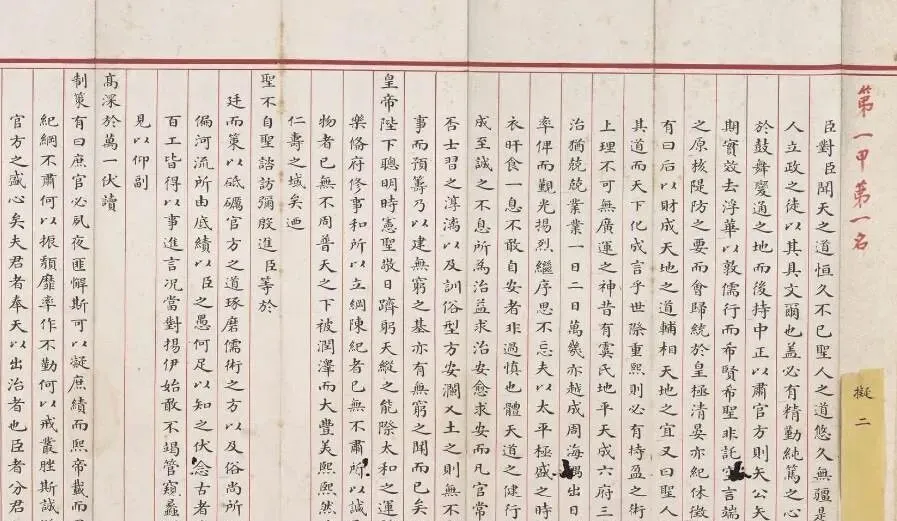 第一甲第一名
擬二
臣對臣聞天之道恒久不已聖人之道悠久無疆是
人立政之徒以其具文爾也蓋必有精勤純篤之心
於鼓舞變通之地而後持中正以肅官方則矢公矢
期實效去浮華以敦儒行而希賢希聖非託空言端
之原核隄防之要而會歸統於皇極清晏亦紀休徵
有曰后以財成天地之道輔相天地之宜又曰聖人
其道而天下化成言乎世際重熙則必有持盈之術
上理不可無廣運之神昔有虞氏地平天成六府三
治猶兢兢業業一日二日萬幾亦越成周海隅出日
率俾而觀光揚烈繼序思不忘夫以太平極盛之時
衣旰食一息不敢自安者非過慎也體天道之健行
成至誠之不息所為治益求治安愈求安而凡官常
否士習之淳漓以及訓俗型方安瀾乂土之則無不
事而預籌乃以建無窮之基亦有無窮之聞而已矣
皇帝陛下聰明時憲聖敬日躋躬天縱之能際太和之運
樂備府修事和所以立綱陳紀者已無不肅所以誠
物者已無不周普天之下被潤澤而大豐美熙熙然
仁壽之域矣迺
聖不自聖諮訪彌殷進臣等於
廷而策以砥礪官方之道琢磨儒術之方以及俗尚所
偏河流所由底績以臣之愚何足以知之伏念古者
百工皆得以事進言況當對揚伊始敢不竭管窺蠡
見以仰副
高深於萬一伏讀
制策有曰庶官必夙夜匪懈斯可以凝庶績而熙帝載而
紀綱不肅何以振頹靡率作不勤何以戒叢脞斯誠
官方之盛心矣夫君者奉天以出治者也臣者分君